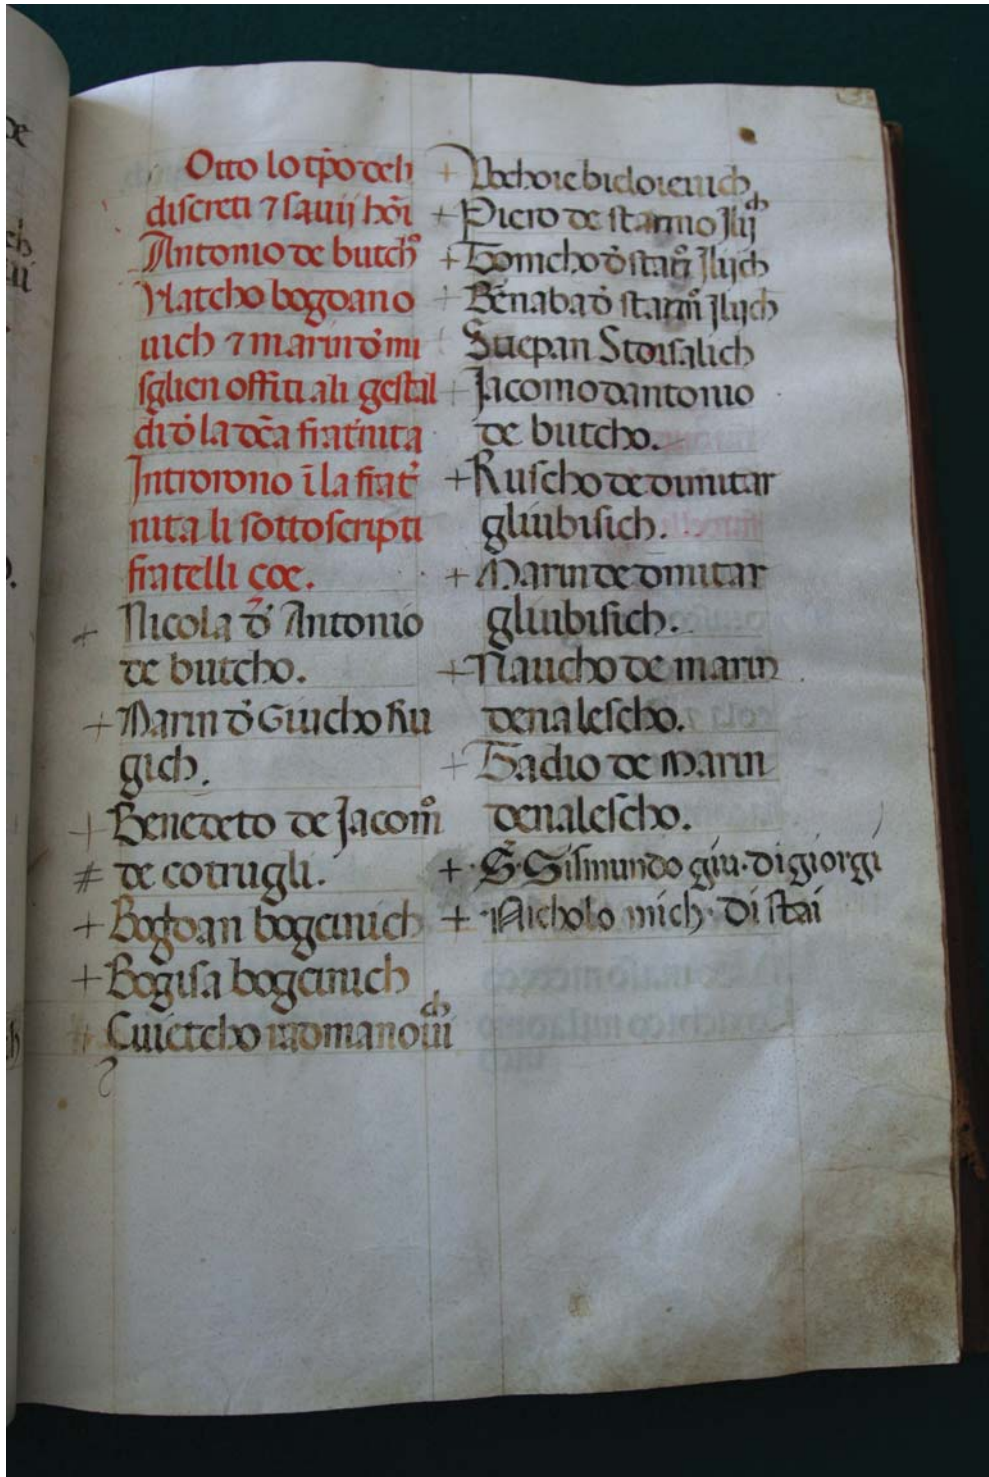 Otto lo tp̄o deli
discreti ⁊ sauij hōi
Antonio de butchº
Ylatcho bogdano
uich ⁊ marin d̄ mi
sglien offiti ali gestal
di d̄ la dc̄a frat̄nita
Introrono ī la frat̄
nita li sottoscripti
fratelli çoe.
+ Nicola d̄ Antonio
de butcho.
+ Marin d̄ Giucho Ru
gich.
+ Benedeto de Jacomº
# de cotrugli.
+ Bogdan bogcinich
+ Bogisa bogcinich
# Cuietcho radmanouich
+ bieloieuich
+ Piero de starmo Jlijch
+ Tomcho d̄ starº Jlijch
+ Benaba d̄ starmº Jlijch
+ Stiepan Stoisalich
+ Jacomo dantonio
de butcho.
+ Ruscho de dimitar
gliubisich.
+ Marin de dimitar
gliubisich.
+ Naucho de marin
denalescho.
+ Tadio de marin
denalescho.
+ S. Sismundo giu. di giorgi
+ Nicholo mich. di stai